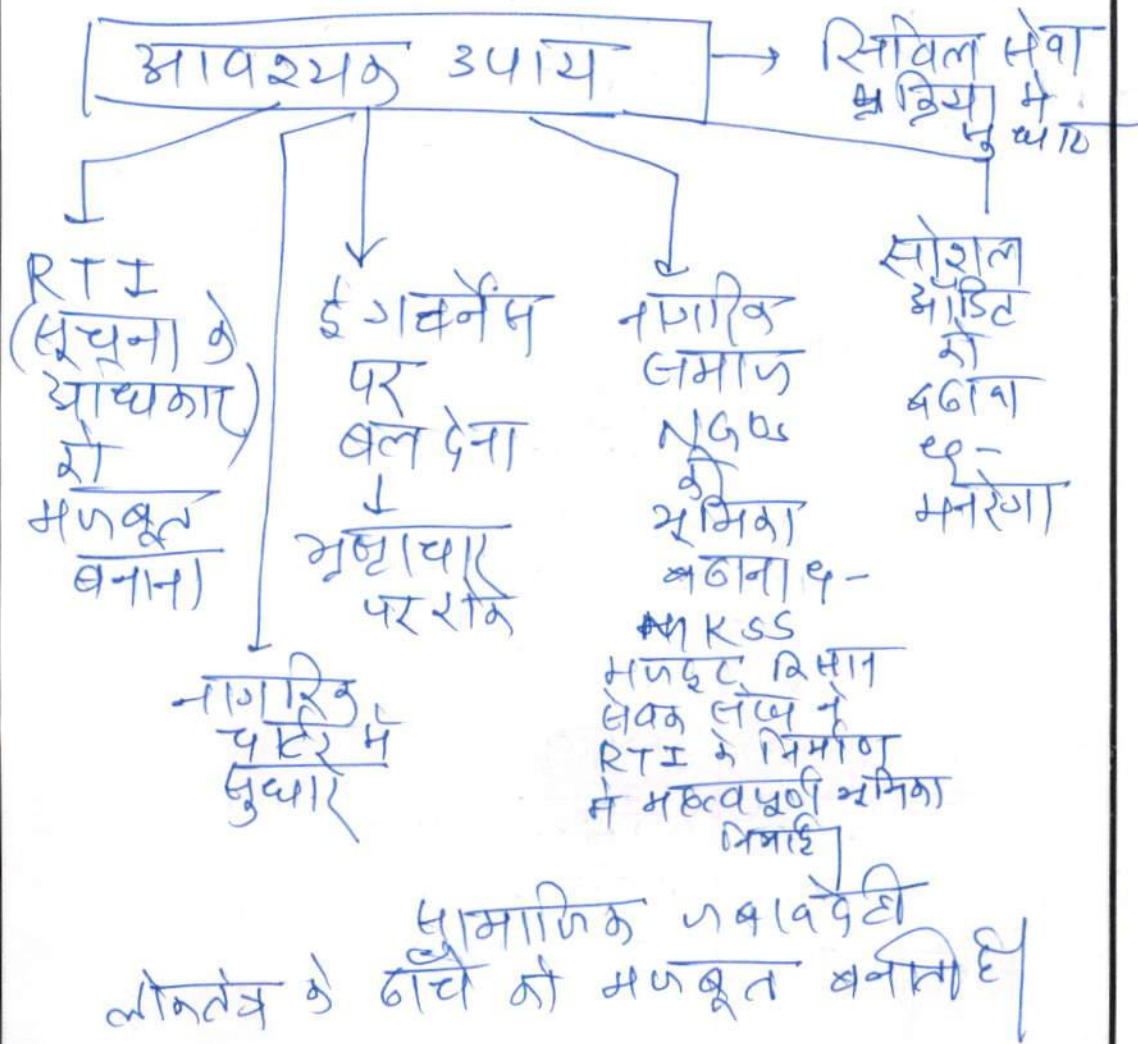 आवश्यक उपाय
सिविल सेवा
प्रक्रिया मे
सुधार
RTI
(सूचना के
अधिकार)
को
मजबूत
बनाना
नागरिक
चार्टर मे
सुधार
ई गवर्नेंस
पर
बल देना
भ्रष्टाचार
पर रोक
नागरिक
समाज
NGOs
की
भूमिका
बढाना
MKSS
मजदूर किसान
सेवक संघ ने
RTI के निर्माण
मे महत्वपूर्ण भूमिका
निभाई
सोशल
ऑडिट
को
बढावा
मनरेगा
सामाजिक जबावदेही
लोकतंत्र के ढाँचे को मजबूत बनाती है।